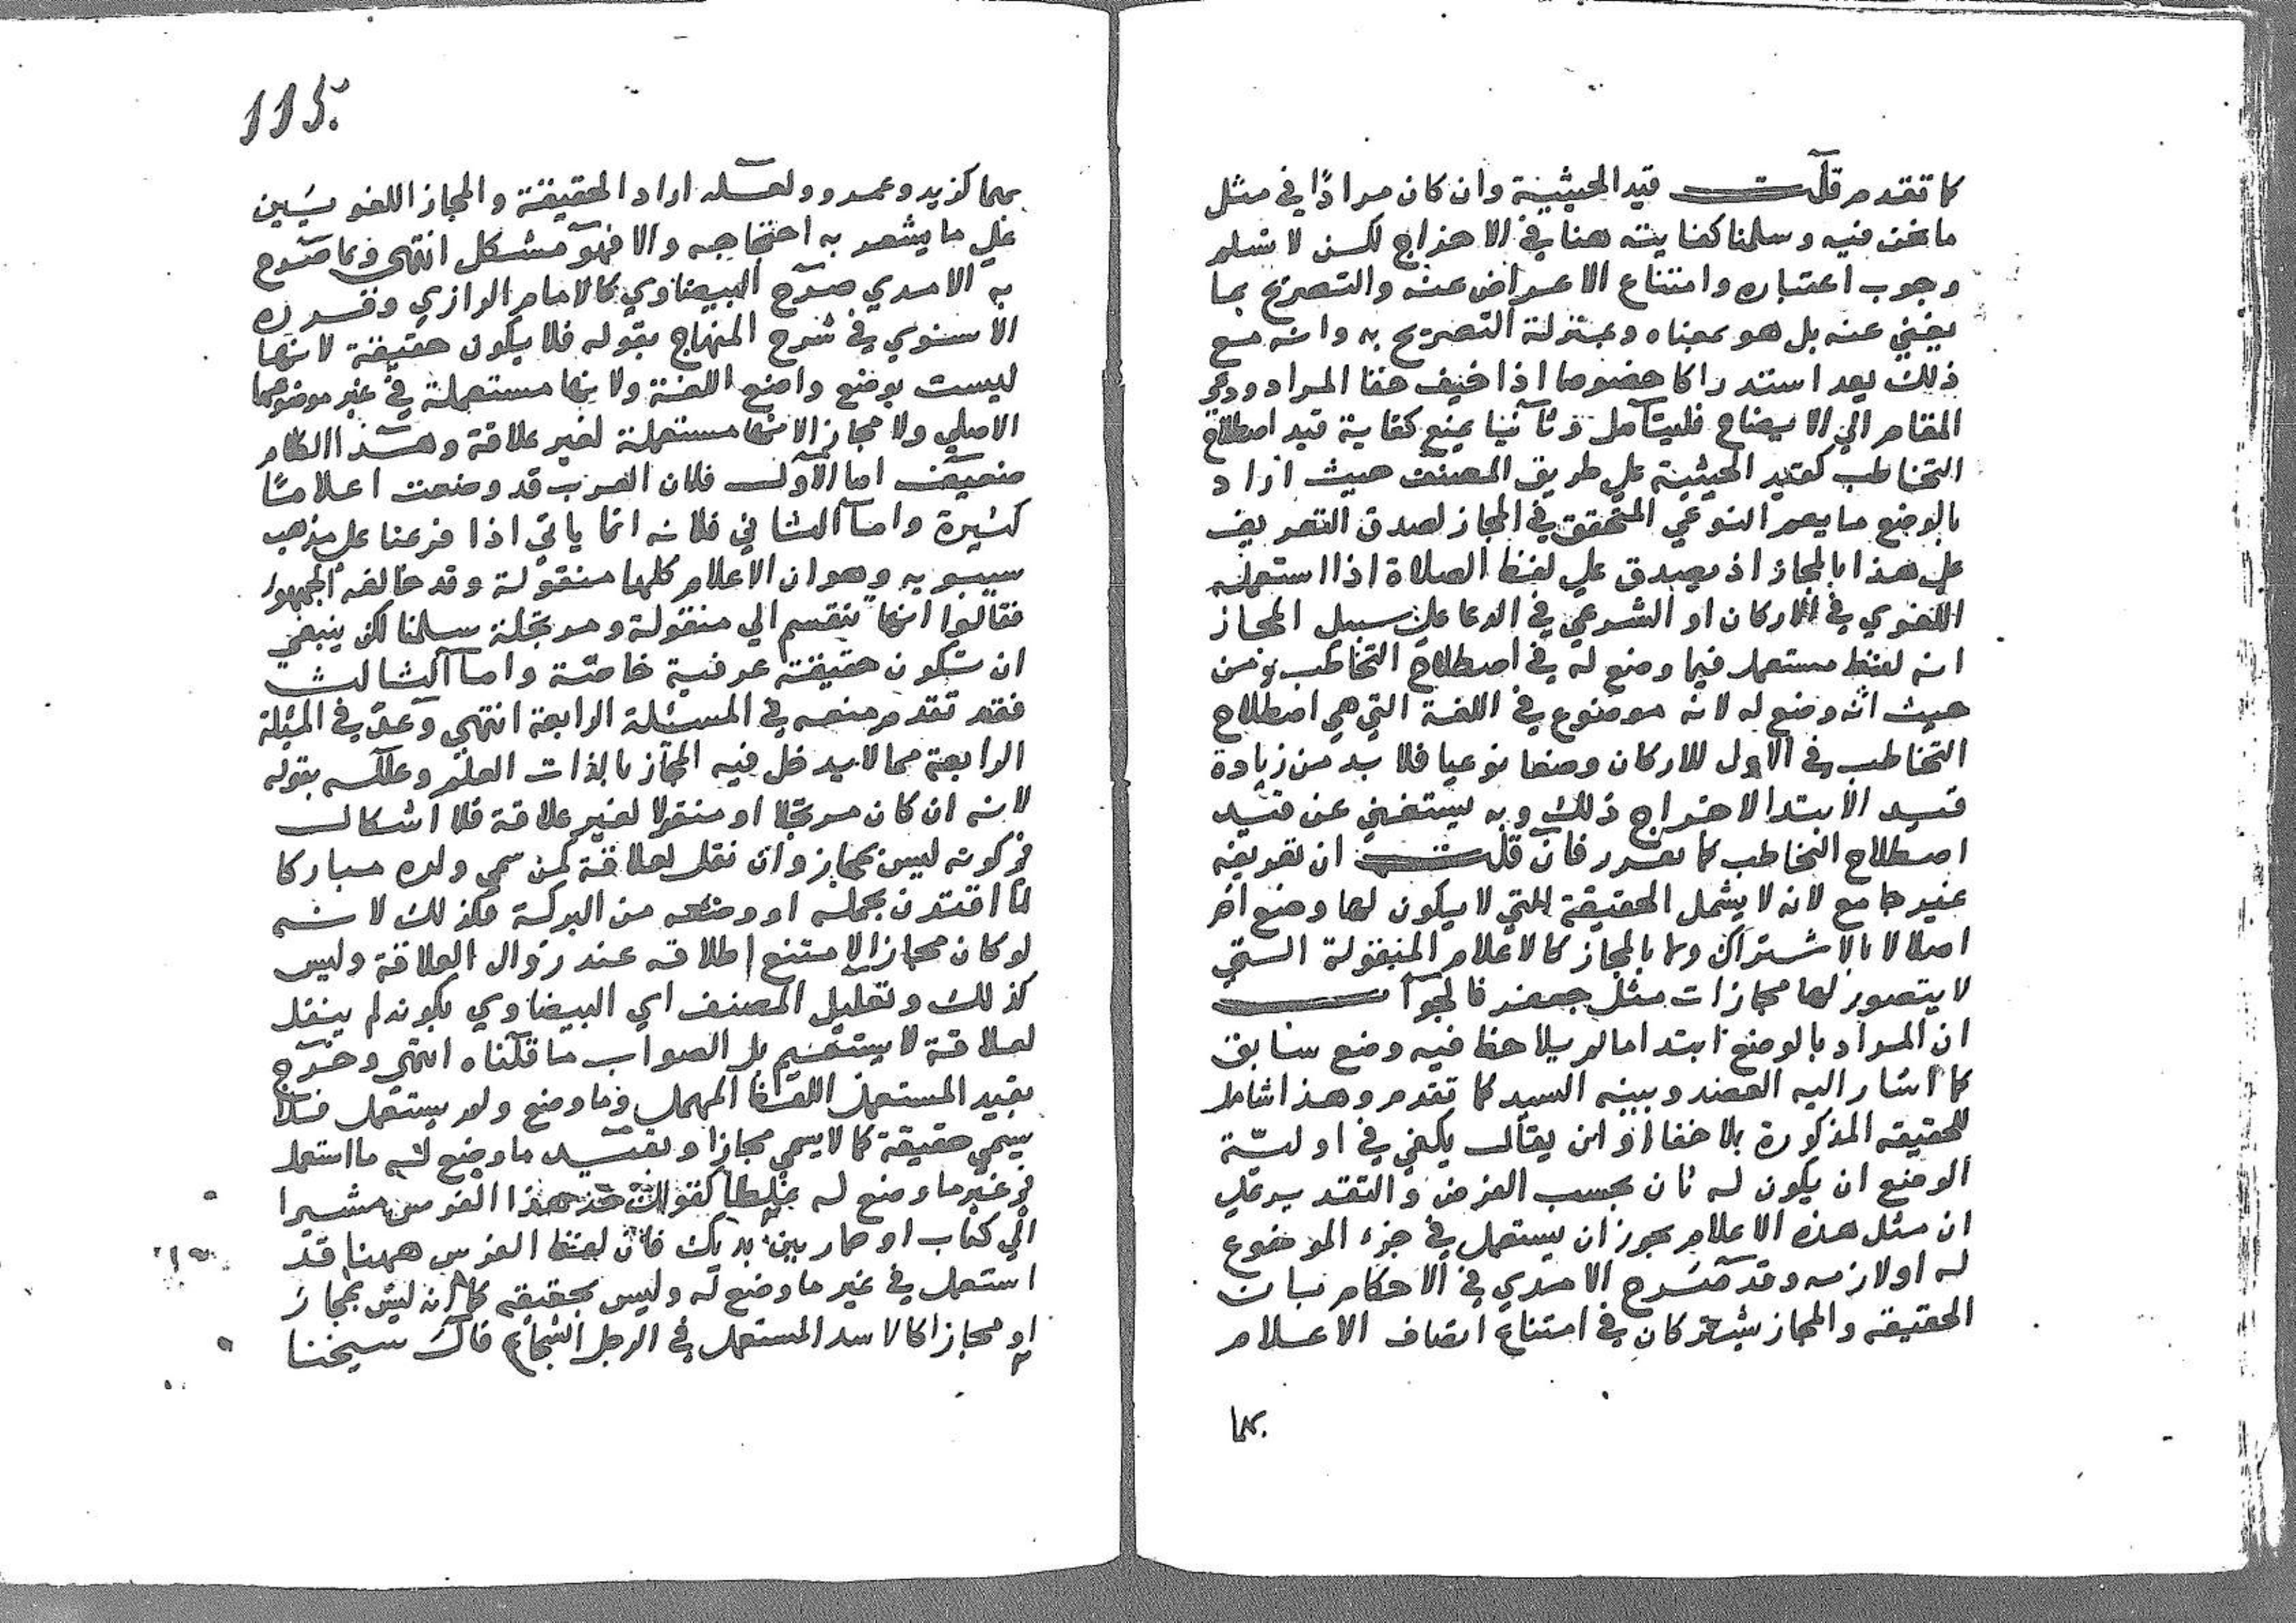 كما تقدم قلت قيد الحيثية وان كان مرادًا في مثل
ما نحن فيه وسلمنا كفايته هنا في الاخراج لكن لا نسلم
وجوب اعتباره وامتناع الاعراض عنه والتصريح بما
يغني عنه بل هو بمعناه وبمنزلة التصريح به وانه مع
ذلك يعد استدراكا خصوصا اذا خيف خفا المراد ودعى
المقام الي الايضاح فليتامل وثانيا بمنع كفاية قيد اصطلاح
التخاطب كقيد الحيثية علي طريق المصنف حيث اراد
بالوضع ما يعم النوعي المتحقق في المجاز لصدق التعريف
علي هذا بالمجاز اذ يصدق علي لفظ الصلاة اذا استعمله
اللغوي في الاركان او الشرعي في الدعا علي سبيل المجاز
انه لفظ مستعمل فيما وضع له في اصطلاح التخاطب ومن
حيث انه وضع له لانه موضوع في اللغة التي هي اصطلاح
التخاطب في الاول للاركان وضعا نوعيا فلا بد من زيادة
قيد الابتدا لاخراج ذلك وبه يستغني عن قيد
اصطلاح التخاطب كما تقرر فان قلت ان تعريفه
غير جامع لانه لا يشمل الحقيقة التي لا يكون لها وضع اخر
اصلا لا بالاشتراك ولا بالمجاز كالاعلام المنقولة التي
لا يتصور لها مجازات مثل جعفر فالجواب
ان المراد بالوضع ابتدا ما لم يلاحظ فيه وضع سابق
كما اشار اليه العضد وبينه السيد كما تقدم وهذا شامل
للحقيقه المذكورة بلا خفا او ان يقال يكفي في اوليّة
الوضع ان يكون له ثان بحسب الفرض والتقدير علي
ان مثل هذه الاعلام يجوز ان يستعمل في جزء الموضوع
له او لازمه وقد صرح الامدي في الاحكام بان
الحقيقه والمجاز يشتركان في امتناع اتصاف الاعلام
بهما
115
بهما كزيد وعمرو ولعله اراد الحقيقة والمجاز اللغويَين
علي ما يشعر به احتجاجه والا فهو مشكل انتهي وبما صرح
به الامدي صرح البيضاوي كالامام الرازي وقرره
الاسنوي في شرح المنهاج بقوله فلا يكون حقيقة لانها
ليست بوضع واضع اللغة ولا نها مستعملة في غير موضوعها
الاصلي ولا مجاز الانها مستعملة لغير علاقة وهذا الكلام
ضعيف اما الاول فلان العرب قد وضعت اعلامًا
كثيرة واما الثاني فلانه انما ياتي اذا فرعنا علي مذهب
سيبويه وهو ان الاعلام كلها منقولة وقد خالفه الجمهور
فقالوا انها تنقسم الي منقولة ومرتجلة سلمنا لكن ينبغي
ان تكون حقيقة عرفية خاصّة واما الثالث
فقد تقدم منعه في المسئلة الرابعة انتهي وعدّ في المئلة
الرابعة مما لا يدخل فيه المجاز بالذات العلم وعلله بقوله
لانه ان كان مرتجلا او منقولا لغير علاقة فلا اشكال
في كونه ليس بمجاز وان نقل لعلاقة كمن سمي ولده مباركا
لما اقترن بحمله او وضعه من البركة فكذلك لانه
لو كان مجازا لامتنع اطلاقه عند زوال العلاقة وليس
كذلك وتعليل المصنف اي البيضاوي بكونه لم ينقل
لعلاقة لا يستقيم بل الصواب ما قلناه انتهي وخرج
بقيد المستعمل اللفظ المهمل وما وضع ولم يستعمل فلا
يسمي حقيقة كما لا يسمي مجازا وبقيد ما وضع له ما استعمل
في غير ما وضع له غلطا كقولك خذ هذا الفرس مشيرا
الي كتاب او حمار بين يديك فان لفظ الفرس ههنا قد
استعمل في غير ما وضع له وليس بحقيقه كما انه ليس بمجاز
او مجازا كالاسد المستعمل في الرجل الشجاع قال شيخنا